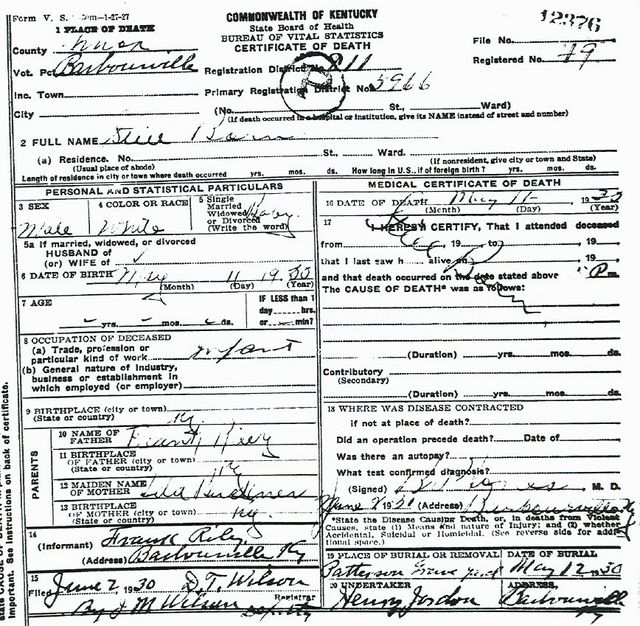 Form V. S. 1-27-27
COMMONWEALTH OF KENTUCKY
State Board of Health
BUREAU OF VITAL STATISTICS
CERTIFICATE OF DEATH
12376
1 PLACE OF DEATH
County Knox
File No.
Registered No. 49
Vot. Pct Barbourville
Registration District No. 811
Inc. Town
Primary Registration District No. 5966
City (No. St., Ward)
(If death occurred in a hospital or institution, give its NAME instead of street and number)
2 FULL NAME Still Born
(a) Residence. No. St., Ward.
(Usual place of abode) (If nonresident, give city or town and State)
Length of residence in city or town where death occurred yrs. mos. ds. How long in U.S., if of foreign birth? yrs. mos. ds.
PERSONAL AND STATISTICAL PARTICULARS
3 SEX
Male
4 COLOR OR RACE
White
5 Single
Married
Widowed
or Divorced
(Write the word)
Baby
5a If married, widowed, or divorced
HUSBAND of
(or) WIFE of
6 DATE OF BIRTH May 11 1930
(Month) (Day) (Year)
7 AGE
yrs. mos. ds.
IF LESS than 1
day hrs.
or min?
8 OCCUPATION OF DECEASED
(a) Trade, profession or
particular kind of work infant
(b) General nature of industry,
business or establishment in
which employed (or employer)
9 BIRTHPLACE (city or town)
(State or country) Ky
PARENTS
10 NAME OF
FATHER Frank Riley
11 BIRTHPLACE
OF FATHER (city or town)
(State or country) Ky
12 MAIDEN NAME
OF MOTHER
13 BIRTHPLACE
OF MOTHER (city or town)
(State or country) Ky
14
(Informant) Frank Riley
(Address) Barbourville Ky
15
Filed June 2 1930 D.T. Wilson
Registrar
By J M Wilson Deputy
MEDICAL CERTIFICATE OF DEATH
16 DATE OF DEATH May 11 1930
(Month) (Day) (Year)
17
I HEREBY CERTIFY, That I attended deceased
from 19 to 19
that I last saw h alive on 19
and that death occurred on the date stated above P m.
The CAUSE OF DEATH* was as follows:
(Duration) yrs. mos. ds.
Contributory
(Secondary)
(Duration) yrs. mos. ds.
18 WHERE WAS DISEASE CONTRACTED
if not at place of death?
Did an operation precede death? Date of
Was there an autopsy?
What test confirmed diagnosis?
(Signed) M. D.
June 2 1930 (Address) Barbourville Ky
*State the Disease Causing Death, or, in deaths from Violent
Causes, state (1) Means and nature of Injury; and (2) whether
Accidental, Suicidal or Homicidal. (See reverse side for addi-
tional space.)
19 PLACE OF BURIAL OR REMOVAL
Patterson Grave yard
DATE OF BURIAL
May 12 1930
20 UNDERTAKER
Henry Jordon
ADDRESS
Barbourville
Ky
important. See instructions on back of certificate.